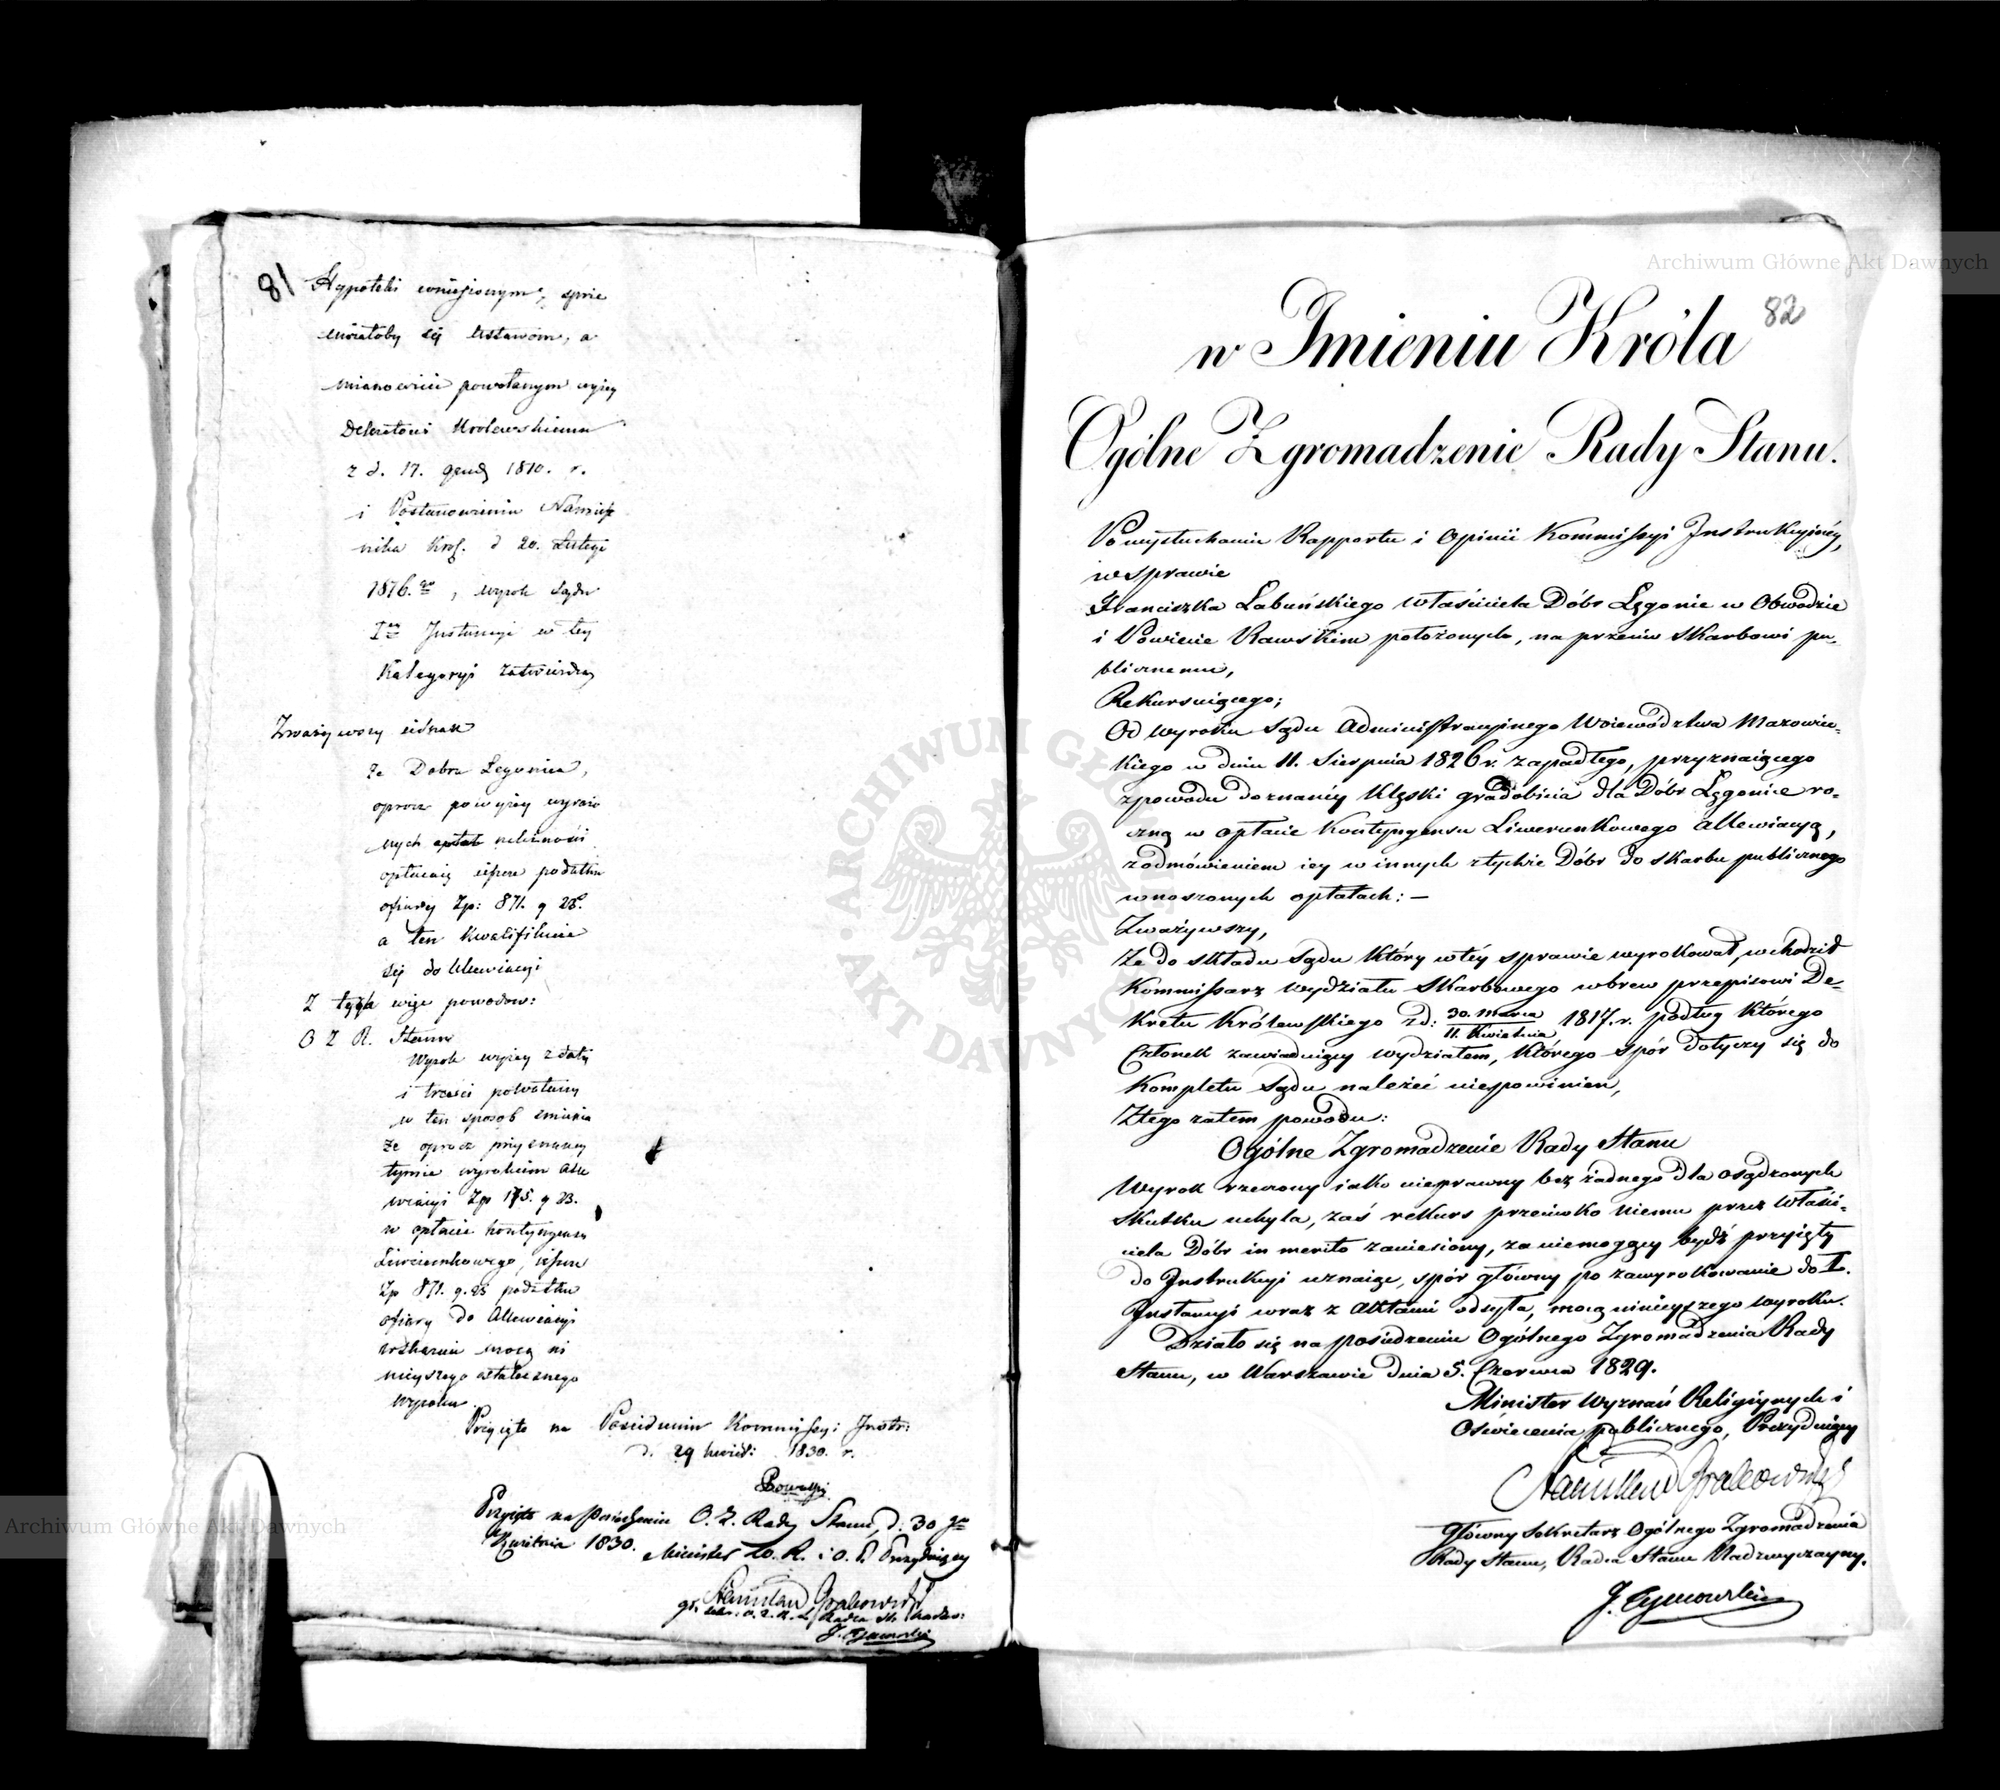 81
Hypoteki wniesionym, sprze
ciwiałoby się Ustawom, a
mianowicie powołanym wyżey
Dekretowi Królewskiemu
z d. 17. grud 1810. r.
i Postanowieniu Namiest
nika Król. d 20. Lutego
1816. , wyrok Sądu
I Instancyi w tey
Kategoryi zatwierdza
Zważywszy iednak
że Dobra Legonice,
oprocz powyżey wyraio
nych należności
opłacaią ieszcze podatku
ofiary Zp: 871. g 28.
a ten kwalifikuie
się do Allewiacyi
Z tych więc powodow:
O Z R. Stanu
Wyrok wyżey z daty
i treści powołany
w ten sposób zmienia
że oprocz przyznaney
tymże wyrokiem Alle
wiacyi Zp 175. g 23.
w opłacie kontyngensu
Liwerunkowego, ieszcze
Zp 871. g. 28 podatku
ofiary do Allewiacyi
wskazuie mocą ni
nieyszego ostatecznego
wyroku.
Przyięto na Posiedzeniu Kommissyi Instr:
d. 29 kwiet: 1830. r.
Przyięte na Posiedzeniu O. Z. Rady Stanu, d. 30 go
Kwietnia 1830. Minister W. R. i O. P. Prezyduiący
Stanisław Grabowski
gł. Sekr. O. Z. R. S. Radca St. Nadzw:
J. Tymowski
82
w Imieniu Króla
Ogólne Zgromadzenie Rady Stanu.
Po wysłuchaniu Rapportu i Opinii Kommissyi Instrukcyiney,
w sprawie
Franciszka Łabuńskiego właściciela Dóbr Lęgonie w Obwodzie
i Powiecie Rawskim położonych, na przeciw Skarbowi pu-
blicznemu,
Rekursuiącego;
Od wyroku Sądu Administracyinego Woiewództwa Mazowiec-
kiego w dniu 11. Sierpnia 1826 r. zapadłego, przyznaiącego
z powodu doznaney klęski gradobicia dla Dóbr Lęgonice ro-
czną w opłacie kontyngensu Liwerunkowego allewiacyą,
z odmówieniem iey w innych z tychże Dóbr do skarbu publicznego
wnoszonych opłatach: —
Zważywszy,
Że do składu Sądu który w tey sprawie wyrokował, wchodził
Kommissarz wydziału Skarbowego wbrew przepisowi De-
kretu Królewskiego z d: 30. Marca / 11. Kwietnia 1817. r. podług którego
Członek zawiaduiący wydziałem, którego spór dotyczy się do
kompletu Sądu należeć niepowinien,
Z tego zatem powodu:
Ogólne Zgromadzenie Rady Stanu
Wyrok rzeczony iako nieprawny bez żadnego dla osądzonych
skutku uchyla, zaś rekurs przeciwko niemu przez właści-
ciela Dóbr in merito zaniesiony, za niemogący bydź przyięty
do Instrukcyi uznaiąc, spór główny po zawyrokowanie do I.
Instancyi wraz z Aktami odsyła, mocą ninieyszego wyroku.
Działo się na posiedzeniu Ogólnego Zgromadzenia Rady
Stanu, w Warszawie dnia 5. Czerwca 1829.
Minister Wyznań Religiynych i
Oświecenia publicznego, Prezyduiący
Stanisław Grabowski
Główny Sekretarz Ogólnego Zgromadzenia
Rady Stanu, Radca Stanu Nadzwyczayny,
J. Tymowski
Archiwum Główne Akt Dawnych
Archiwum Główne Akt Dawnych
ARCHIWUM GŁÓWNE AKT DAWNYCH